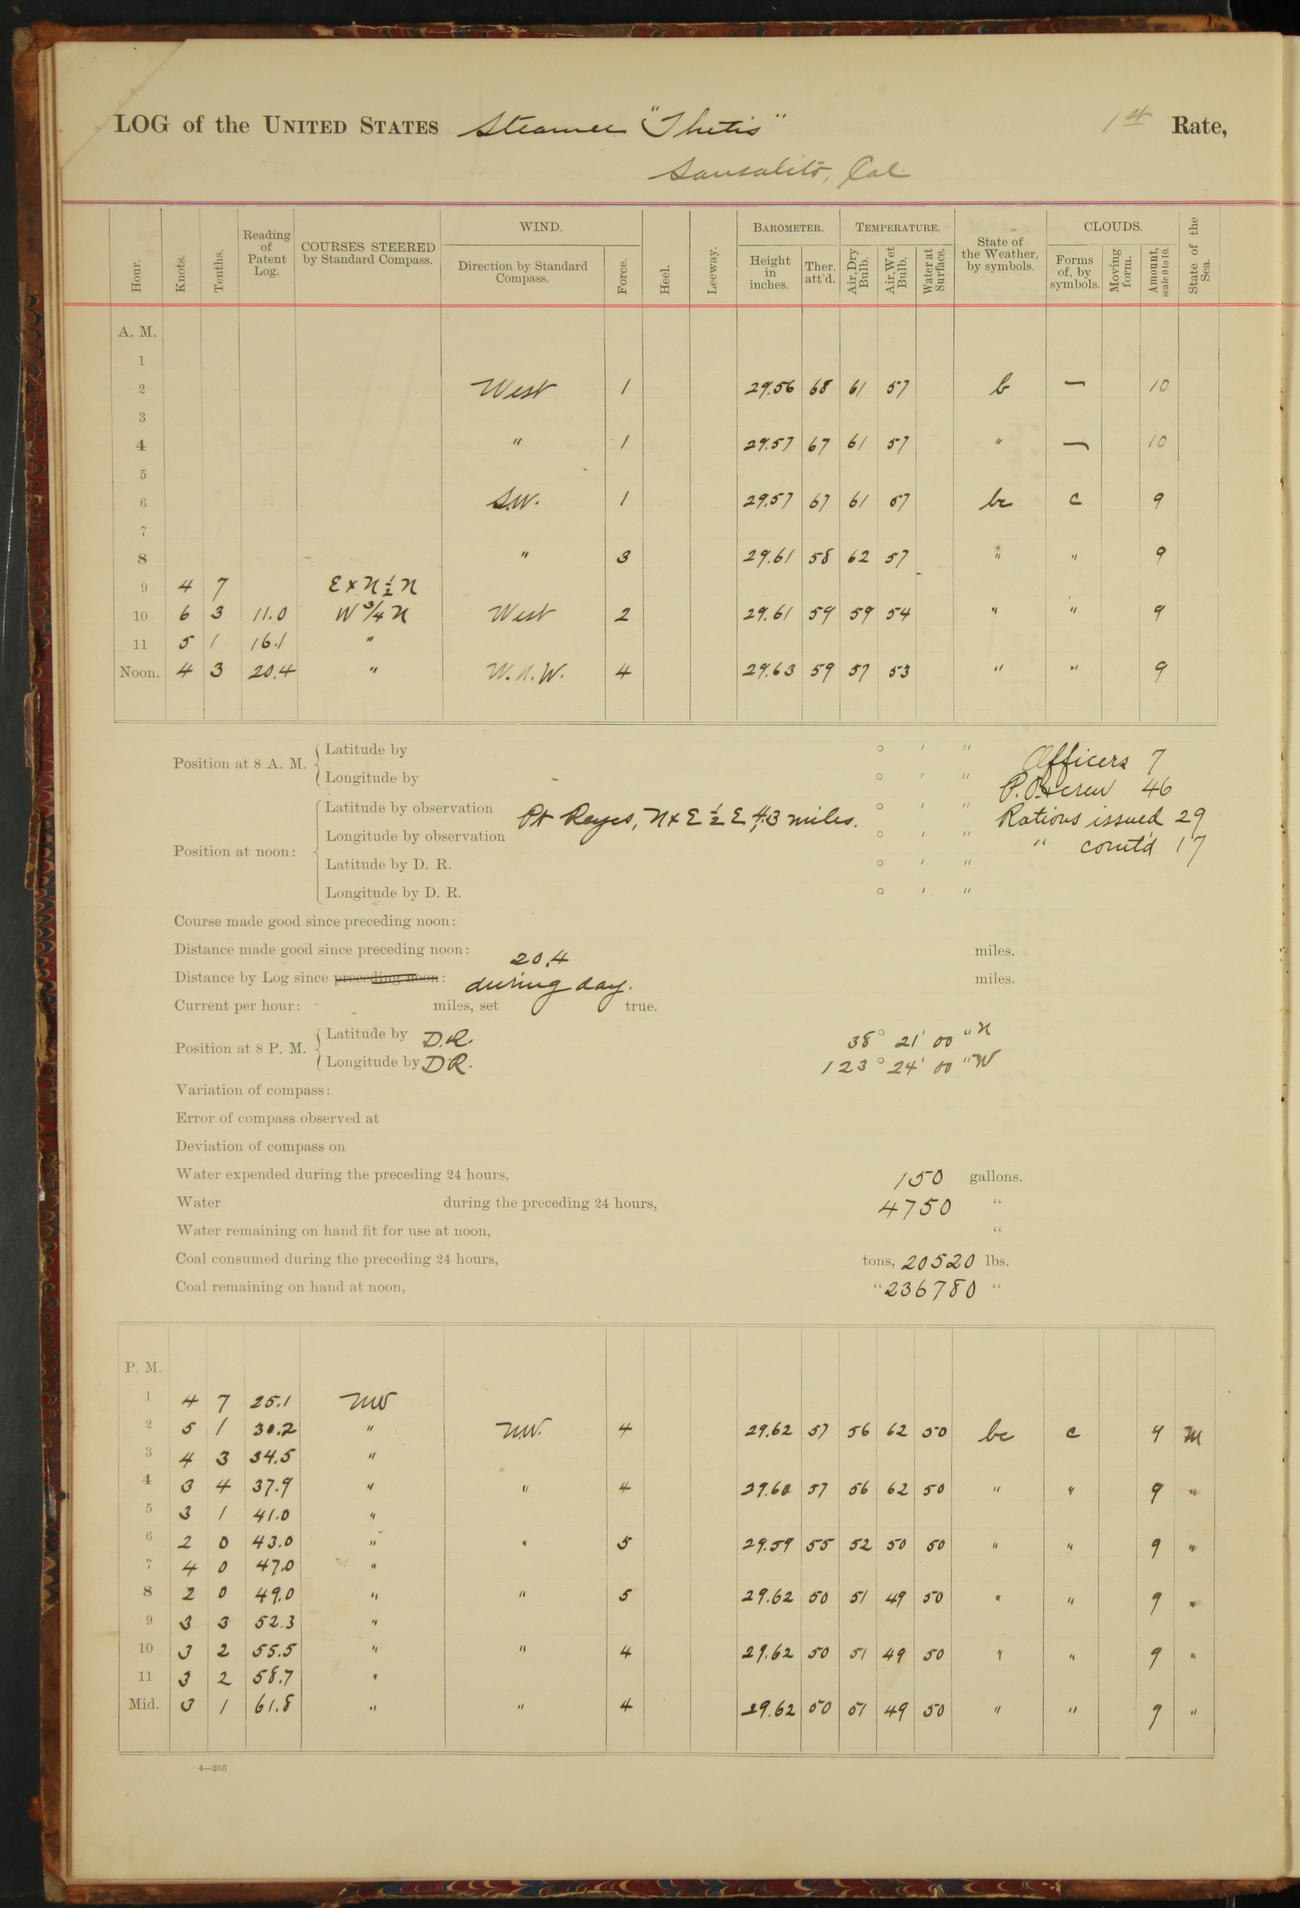 LOG of the UNITED STATES Steamer "Thetis" 1st Rate,
Sausalito, Cal.
Hour. Knots. Tenths. Reading of Patent Log. COURSES STEERED by Standard Compass. WIND. Direction by Standard Compass. Force. Heel. Leeway. BAROMETER. Height in inches. Ther. att'd. TEMPERATURE. Air, Dry Bulb. Air, Wet Bulb. Water at Surface. State of the Weather, by symbols. CLOUDS. Forms of, by symbols. Moving form. Amount, scale 0 to 10. State of the Sea.
A. M.
1
2 West 1 29.56 68 61 57 b — 10
3
4 " 1 29.57 67 61 57 " — 10
5
6 S.W. 1 29.57 67 61 57 bc c 9
7
8 " 3 29.61 58 62 57 " " 9
9 4 7 E x N ½ N
10 6 3 11.0 W ¾ N West 2 29.61 59 59 54 " " 9
11 5 1 16.1 "
Noon. 4 3 20.4 " W.N.W. 4 29.63 59 57 53 " " 9
Position at 8 A. M. Latitude by ° ′ ″ Officers 7
Longitude by ° ′ ″ P.O. & crew 46
Position at noon: Latitude by observation Pt Reyes, N x E ½ E, 4.3 miles. ° ′ ″ Rations issued 29
Longitude by observation ° ′ ″ " comt'd 17
Latitude by D. R. ° ′ ″
Longitude by D. R. ° ′ ″
Course made good since preceding noon:
Distance made good since preceding noon: miles.
20.4
Distance by Log since preceding noon: during day. miles.
Current per hour: miles, set true.
Position at 8 P. M. Latitude by D.R. 38° 21' 00" N
Longitude by DR. 123° 24' 00" W
Variation of compass:
Error of compass observed at
Deviation of compass on
Water expended during the preceding 24 hours, 150 gallons.
Water during the preceding 24 hours, 4750 "
Water remaining on hand fit for use at noon, "
Coal consumed during the preceding 24 hours, tons, 20520 lbs.
Coal remaining on hand at noon, " 236780 "
P. M.
1 4 7 25.1 NW
2 5 1 30.2 " N.W. 4 29.62 57 56 62 50 bc c 9 M
3 4 3 34.5 "
4 3 4 37.9 " " 4 29.60 57 56 62 50 " " 9 "
5 3 1 41.0 "
6 2 0 43.0 " " 5 29.59 55 52 50 50 " " 9 "
7 4 0 47.0 "
8 2 0 49.0 " " 5 29.62 50 51 49 50 " " 9 "
9 3 3 52.3 "
10 3 2 55.5 " " 4 29.62 50 51 49 50 " " 9 "
11 3 2 58.7 "
Mid. 3 1 61.8 " " 4 29.62 50 51 49 50 " " 9 "
4—265